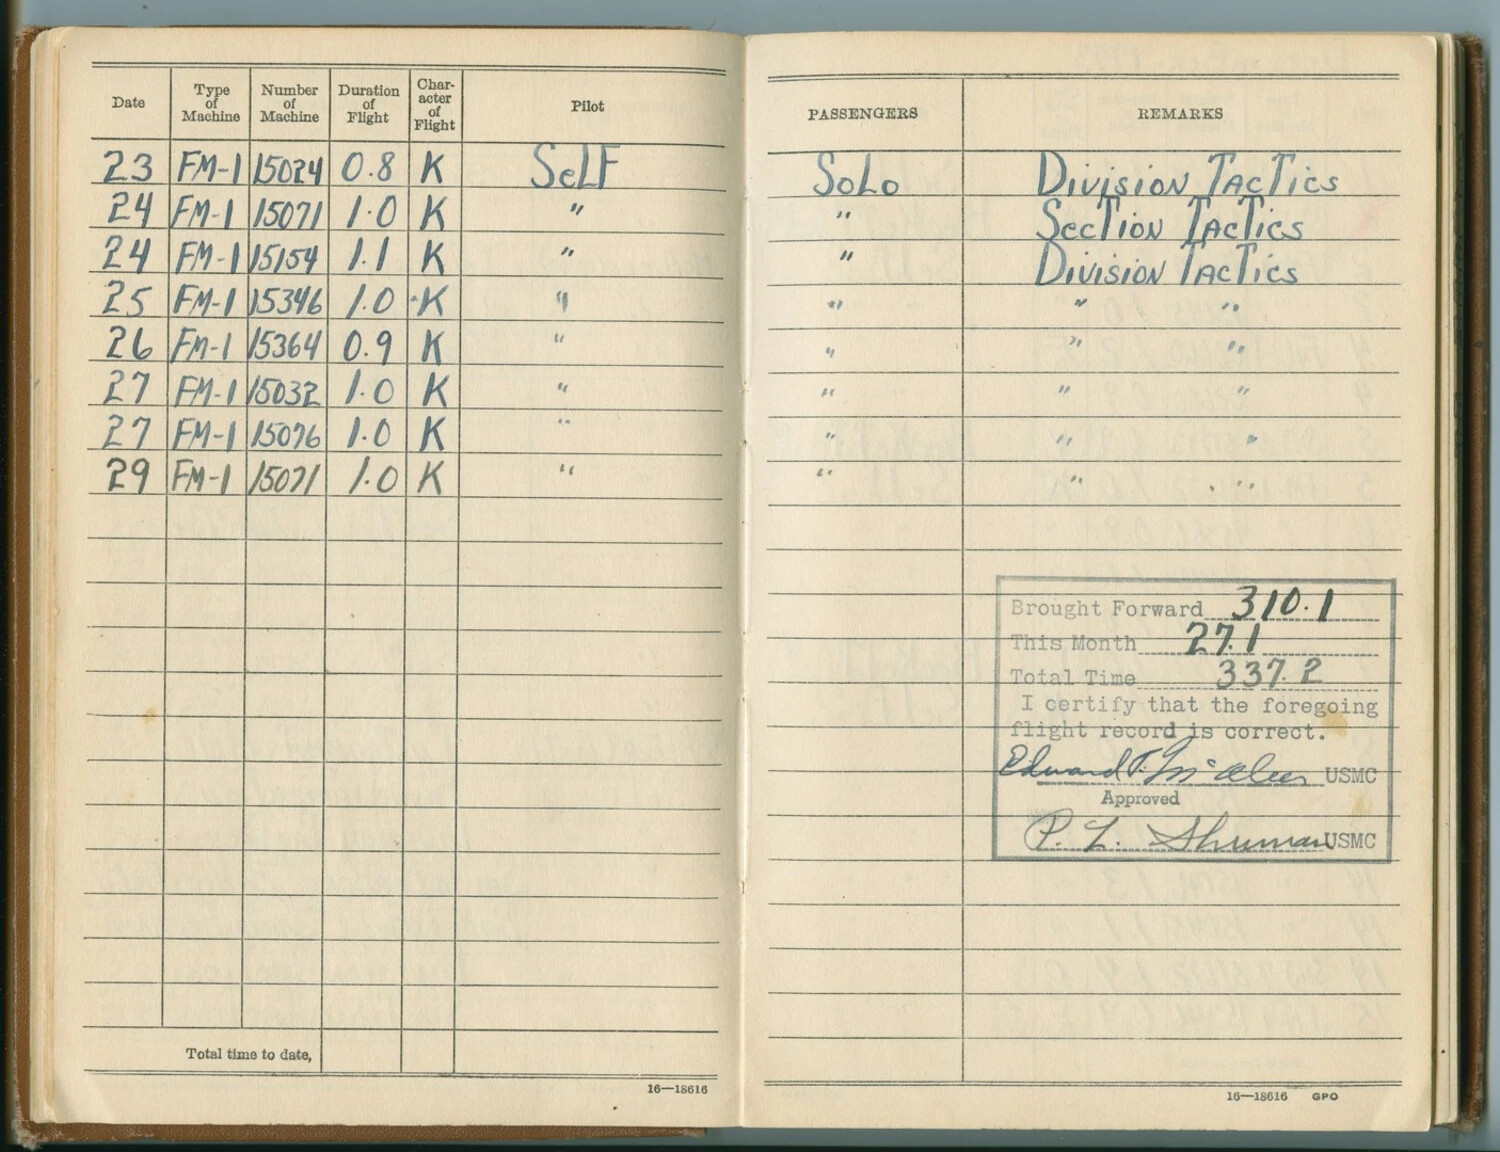 Date Type of Machine Number of Machine Duration of Flight Char-acter of Flight Pilot PASSENGERS REMARKS
23 FM-1 15024 0.8 K SeLF SoLo Division Tactics
24 FM-1 15071 1.0 K " " Section Tactics
24 FM-1 15154 1.1 K " " Division Tactics
25 FM-1 15346 1.0 K " " " "
26 FM-1 15364 0.9 K " " " "
27 FM-1 15032 1.0 K " " " "
27 FM-1 15076 1.0 K " " " "
29 FM-1 15071 1.0 K " " " "
Brought Forward 310.1
This Month 27.1
Total Time 337.2
I certify that the foregoing
flight record is correct.
Edward T. USMC
Approved
P. L. Shuman USMC
Total time to date,
16—18616
16—18616 GPO